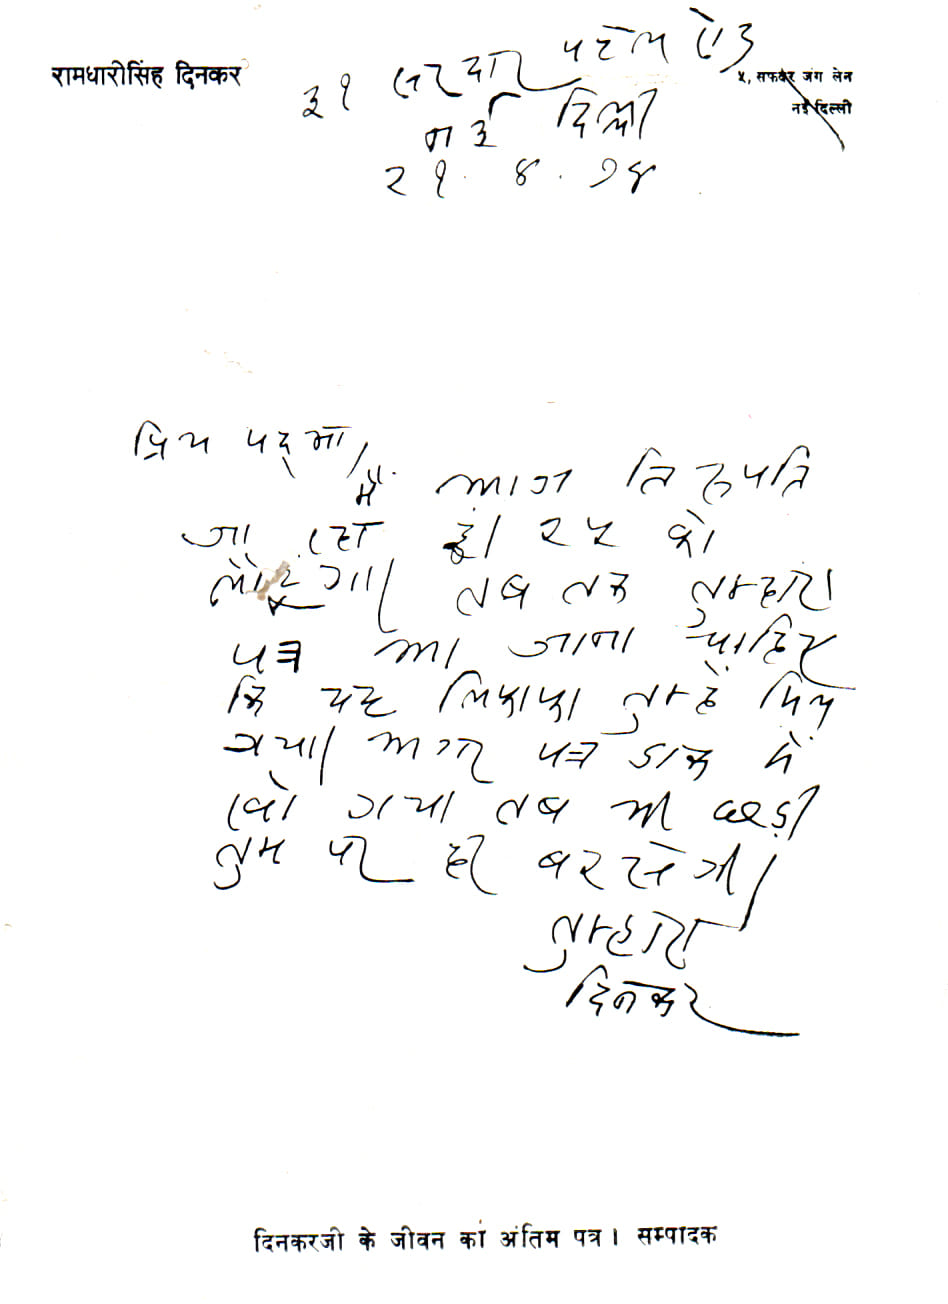 रामधारीसिंह दिनकर
३१ सरदार पटेल रोड
५, सफदर जंग लेन
नई दिल्ली
नई दिल्ली
२१.४.७४
प्रिय पद्मा,
मैं आज तिरुपति
जा रहा हूँ। २५ को
लौटूंगा। तब तक तुम्हारा
पत्र आ जाना चाहिए
कि यह लिफाफा तुम्हें मिल
गया। अगर पत्र डाक में
खो गया तब भी छड़ी
तुम पर ही बरसेगी।
तुम्हारा
दिनकर
दिनकरजी के जीवन का अंतिम पत्र। सम्पादक